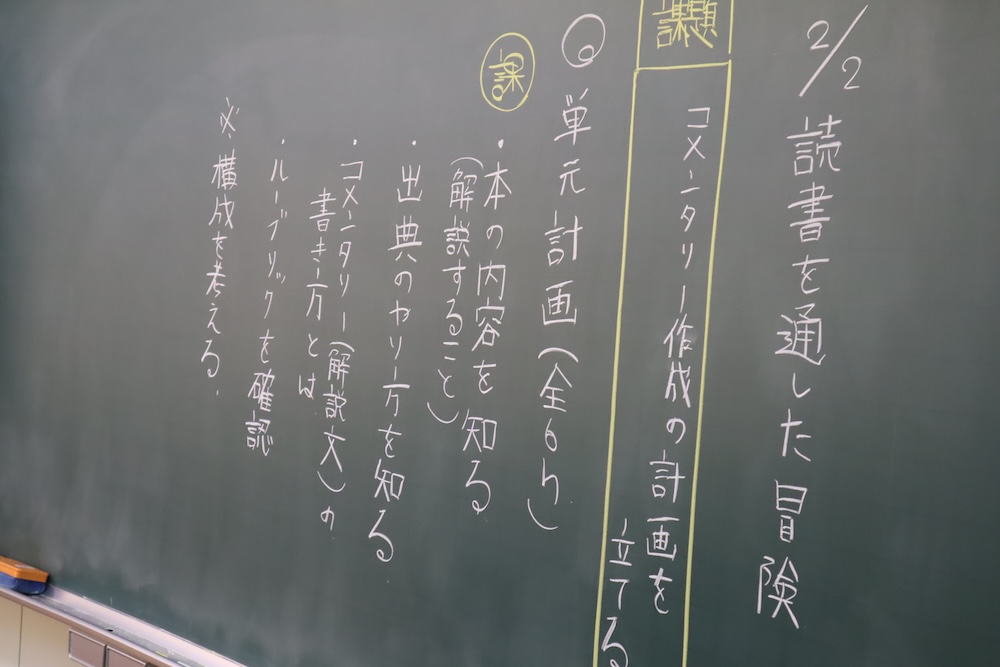 2/2 読書を通した冒険
課題
コメンタリー作成の計画を
立てる
◎単元計画(全6h)
課
・本の内容を知る
(解説すること)
・出典のやり方を知る
・コメンタリー(解説文)の
書き方とは
・ルーブリックを確認
※構成を考える.